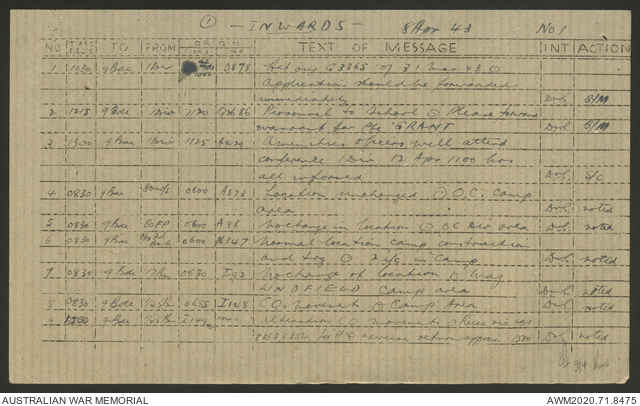 ① - INWARDS - 8 Apr 43 No 1
NO TIME TO FROM ORIGIN TIME NO TEXT OF MESSAGE INT ACTION
1 1030 9 Bde 1 Div 0878 Ref our G3365 of 31 Mar 43 ⊙
Application should be forwarded
immediately B/M
2 1215 9 Bde 1 Div 1120 G3686 Personnel to School ⊙ Please forward
warrant for Pte GRANT B/M
3 1300 9 Bde 1 Div 1125 A4129 Amenities officers will attend
conference 1 Div 12 Apr 1100 hrs
all informed S/C
4 0830 9 Bde 0600 A373 Location unchanged ⊙ O.C. Camp
area noted
5 0830 9 Bde 0600 A98 No change in location ⊙ OC Div area noted
6 0830 9 Bde 0600 N147 Normal location camp construction
and trg ⊙ 2i/c in camp noted
7 0830 9 Bde 0630 I92 No change of location
LINDFIELD camp area noted
8 0830 9 Bde 1/45 Bn 0655 I148 COs movements ⊙ Camp Area noted
9 9 Bde 1/45 Bn I149 alteration CO movements
for HQ exercise return approx noted
9/4
AUSTRALIAN WAR MEMORIAL AWM2020.71.8475